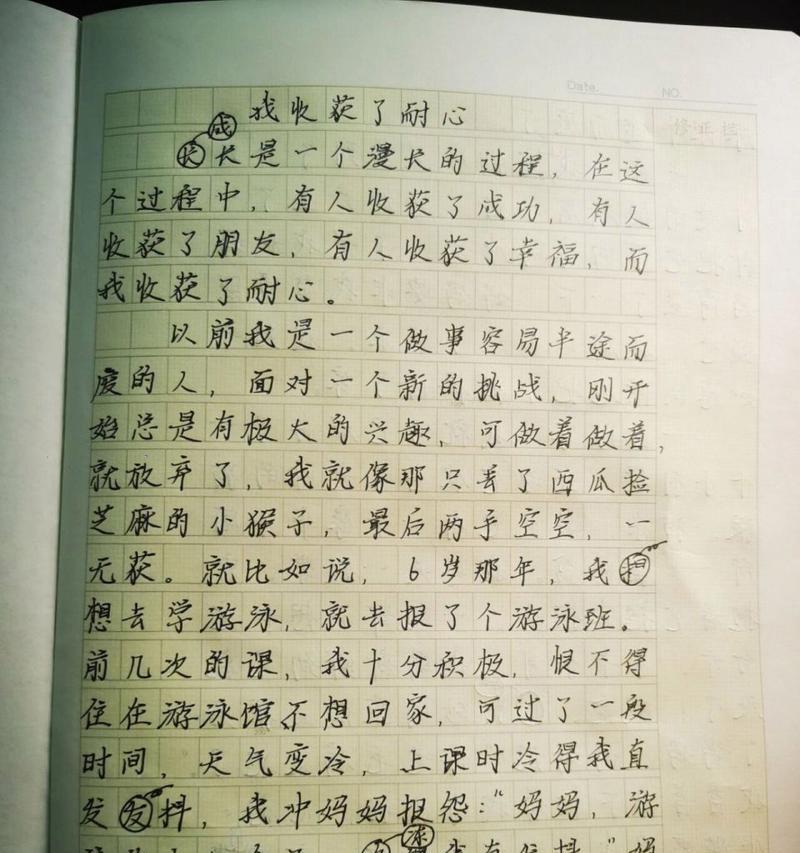 Date. NO.
我收获了耐心
修正栏
成
长长是一个漫长的过程，在这
个过程中，有人收获了成功，有人
收获了朋友，有人收获了幸福，而
我收获了耐心。
以前我是一个做事容易半途而
废的人，面对一个新的挑战，刚开
始总是有极大的兴趣，可做着做着，
就放弃了，我就像那只丢了西瓜捡
芝麻的小猴子，最后两手空空，一
无获。就比如说，6岁那年，我
想去学游泳，就去报了个游泳班。
前几次的课，我十分积极，恨不得
住在游泳馆不想回家，可过了一段
时间，天气变冷，上课时冷得我直
发发抖，我冲妈妈报怨：“妈妈，游